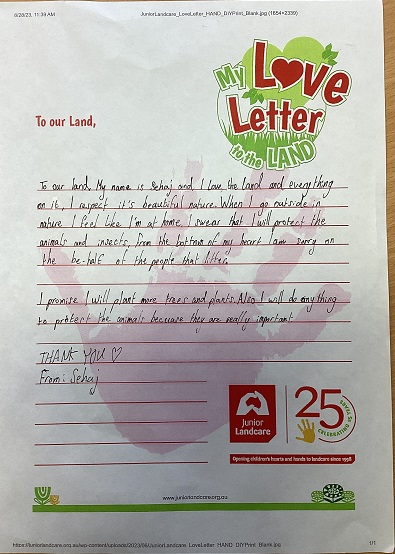 8/28/23, 11:39 AM
JuniorLandcare_LoveLetter_HAND_DIYPrint_Blank.jpg (1654×2339)
My Love
Letter
to the LAND
To our Land,
To our land, My name is Sehaj and I love the land and everything
on it, I respect it's beautiful nature. When I go outside in
nature I feel like I'm at home. I swear that I will protect the
animals and insects, from the bottom of my heart I am sorry on
the be-half of the people that litter.
I promise I will plant more trees and plants. Also I will do anything
to protect the animals because they are really important
THANK YOU ♡
From: Sehaj
Junior
Landcare
25
CELEBRATING 25 YEARS
Opening children's hearts and hands to landcare since 1998
www.juniorlandcare.org.au
https://juniorlandcare.org.au/wp-content/uploads/2023/06/JuniorLandcare_LoveLetter_HAND_DIYPrint_Blank.jpg
1/1